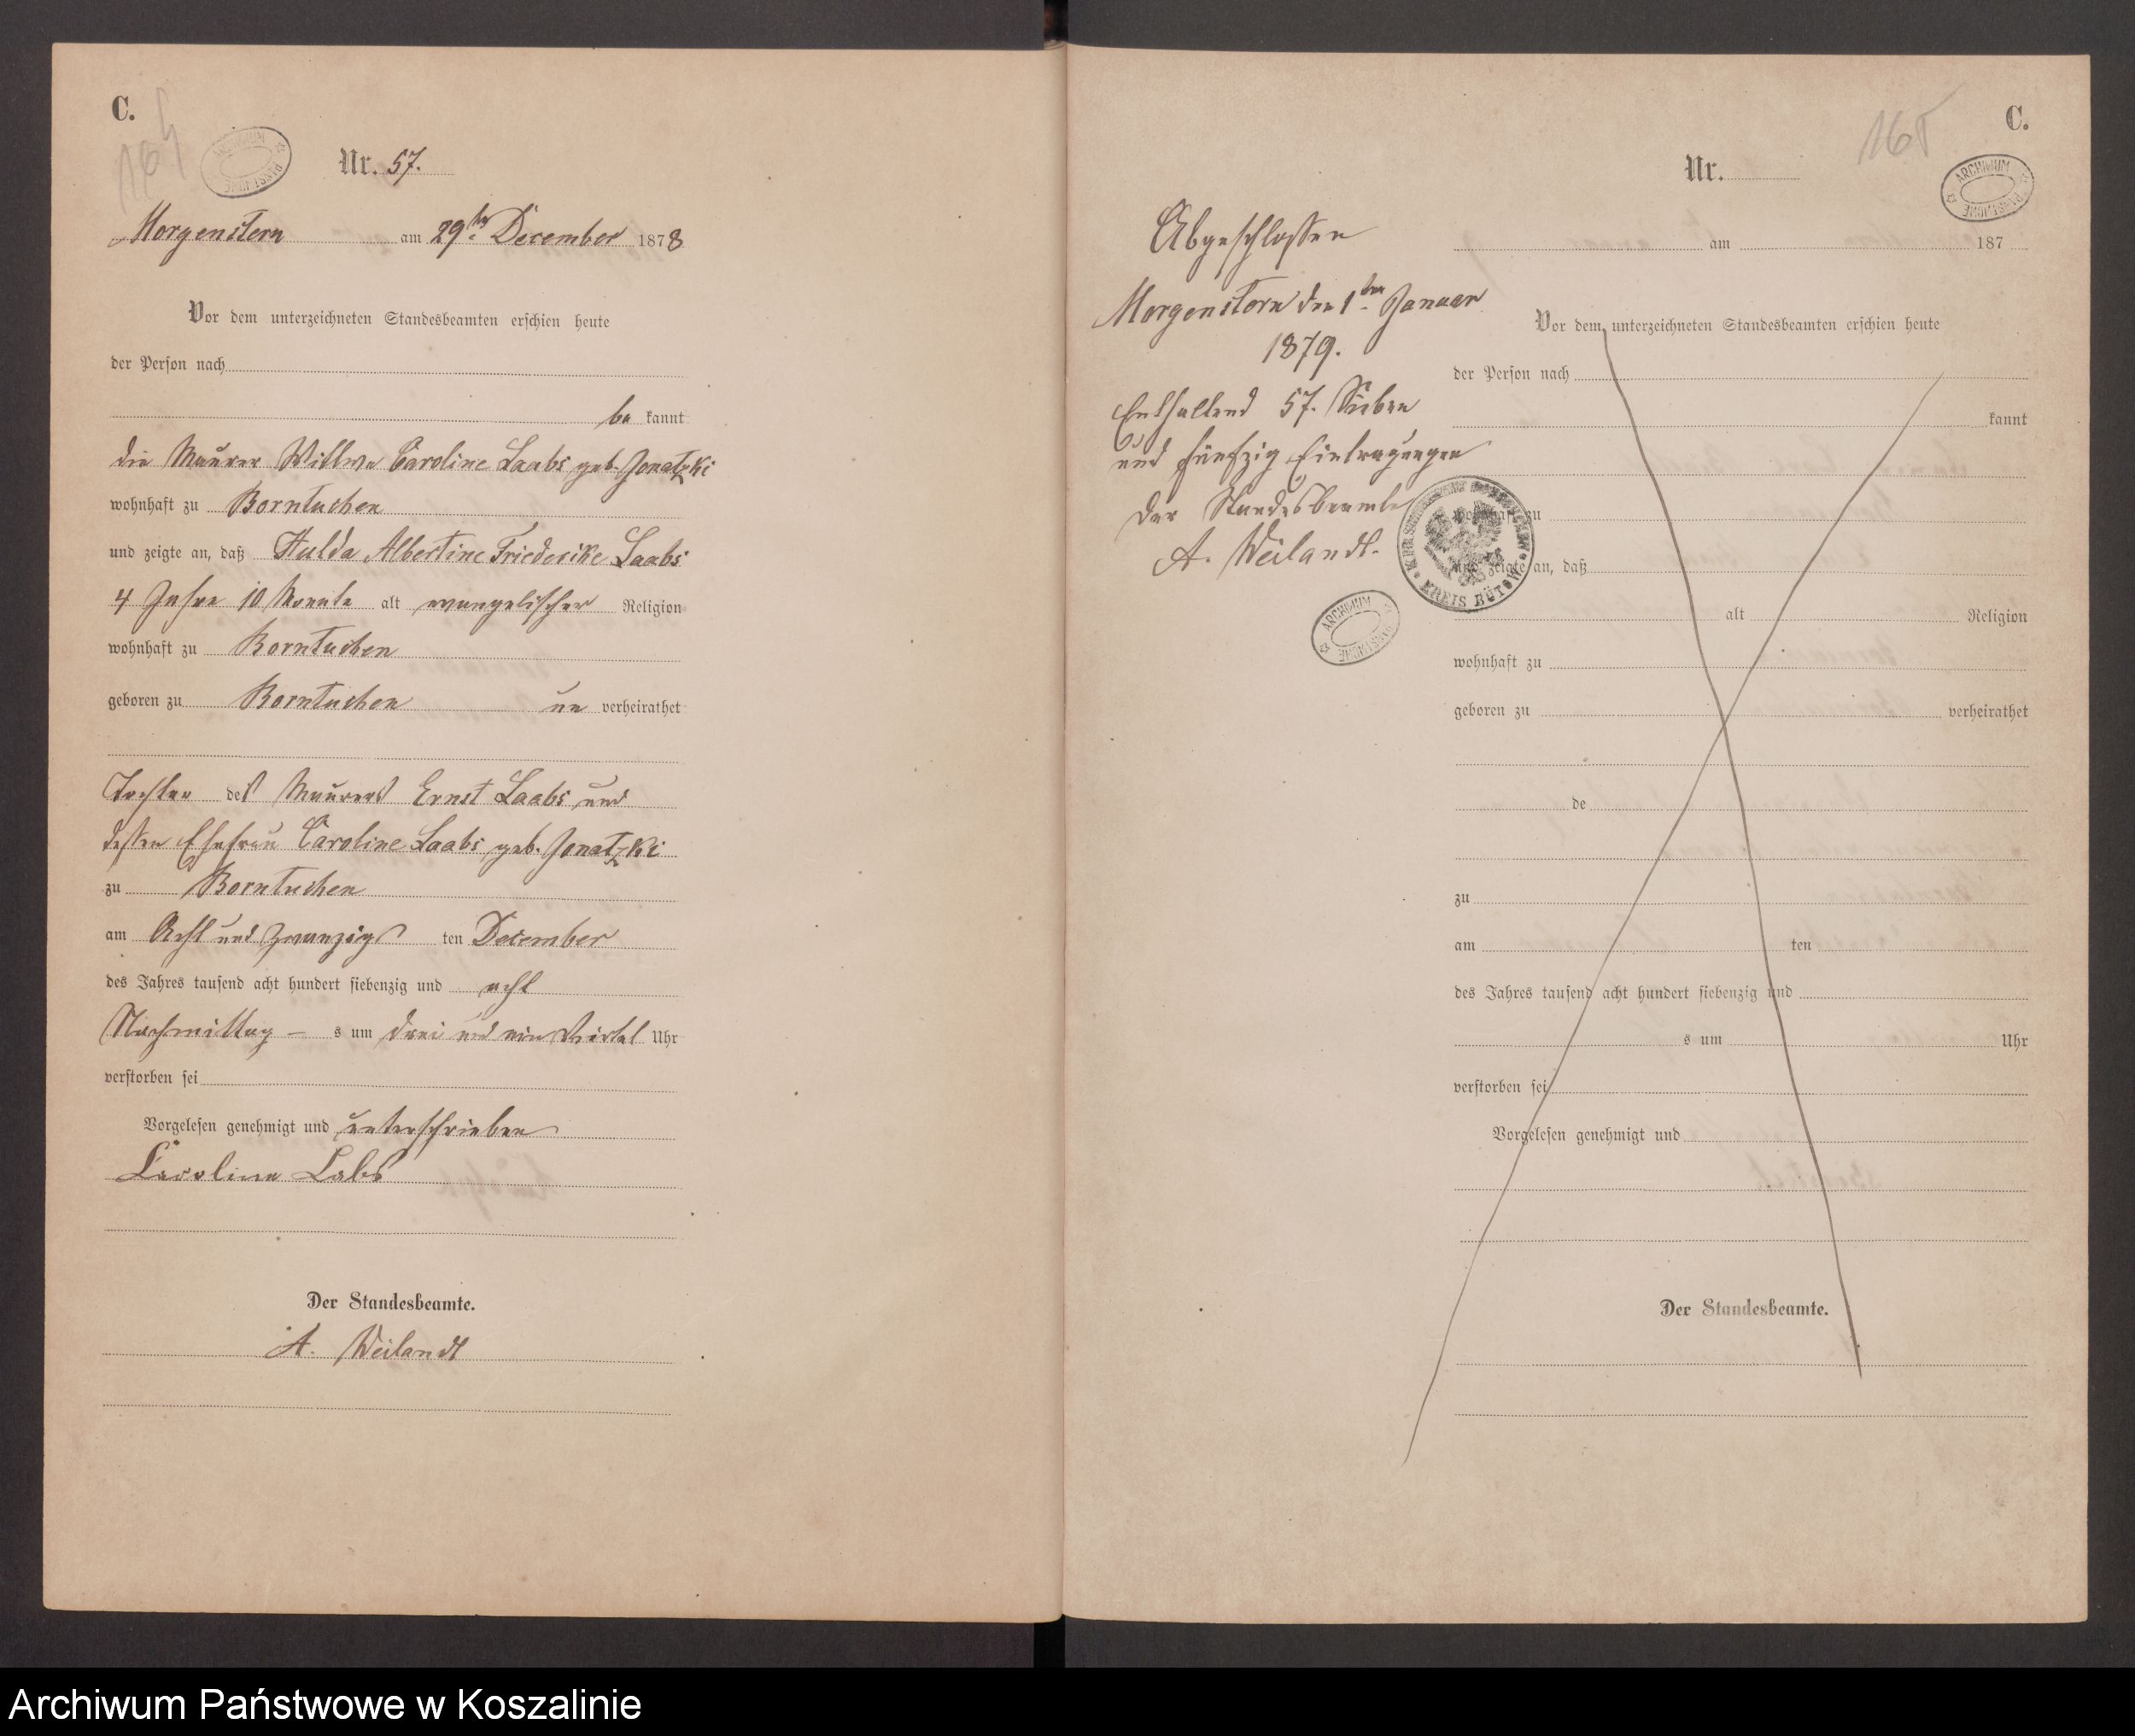 C.
164
ARCHIWUM PAŃSTWOWE
Nr. 57.
Morgenstern am 29ten December 1878
Vor dem unterzeichneten Standesbeamten erschien heute
der Person nach
be kannt
die Maurer Wittwe Caroline Laabs geb. Jonatzki
wohnhaft zu Borntuchen
und zeigte an, daß Hulda Albertine Friederike Laabs
4 Jahre 10 Monate alt evangelischer Religion
wohnhaft zu Borntuchen
geboren zu Borntuchen un verheirathet
Tochter des Maurers Ernst Laabs und
dessen Ehefrau Caroline Laabs geb. Jonatzki
zu Borntuchen
am Acht und zwanzigs ten December
des Jahres tausend acht hundert siebenzig und acht
Nachmittag – s um drei und ein Viertel Uhr
verstorben sei
Vorgelesen genehmigt und unterschrieben
Caroline Labs
Der Standesbeamte.
A. Weilandt
C.
165
Nr.
ARCHIWUM PAŃSTWOWE
am 187
Abgeschlossen
Morgenstern den 1ten Januar
1879.
Enthaltend 57. Sieben
und fünfzig Eintragungen
Der Standesbeamte
A. Weilandt.
KREIS BÜTOW
ARCHIWUM PAŃSTWOWE
Vor dem unterzeichneten Standesbeamten erschien heute
der Person nach
kannt
wohnhaft zu
und zeigte an, daß
alt Religion
wohnhaft zu
geboren zu verheirathet
de
zu
am ten
des Jahres tausend acht hundert siebenzig und
s um Uhr
verstorben sei
Vorgelesen genehmigt und
Der Standesbeamte.
Archiwum Państwowe w Koszalinie